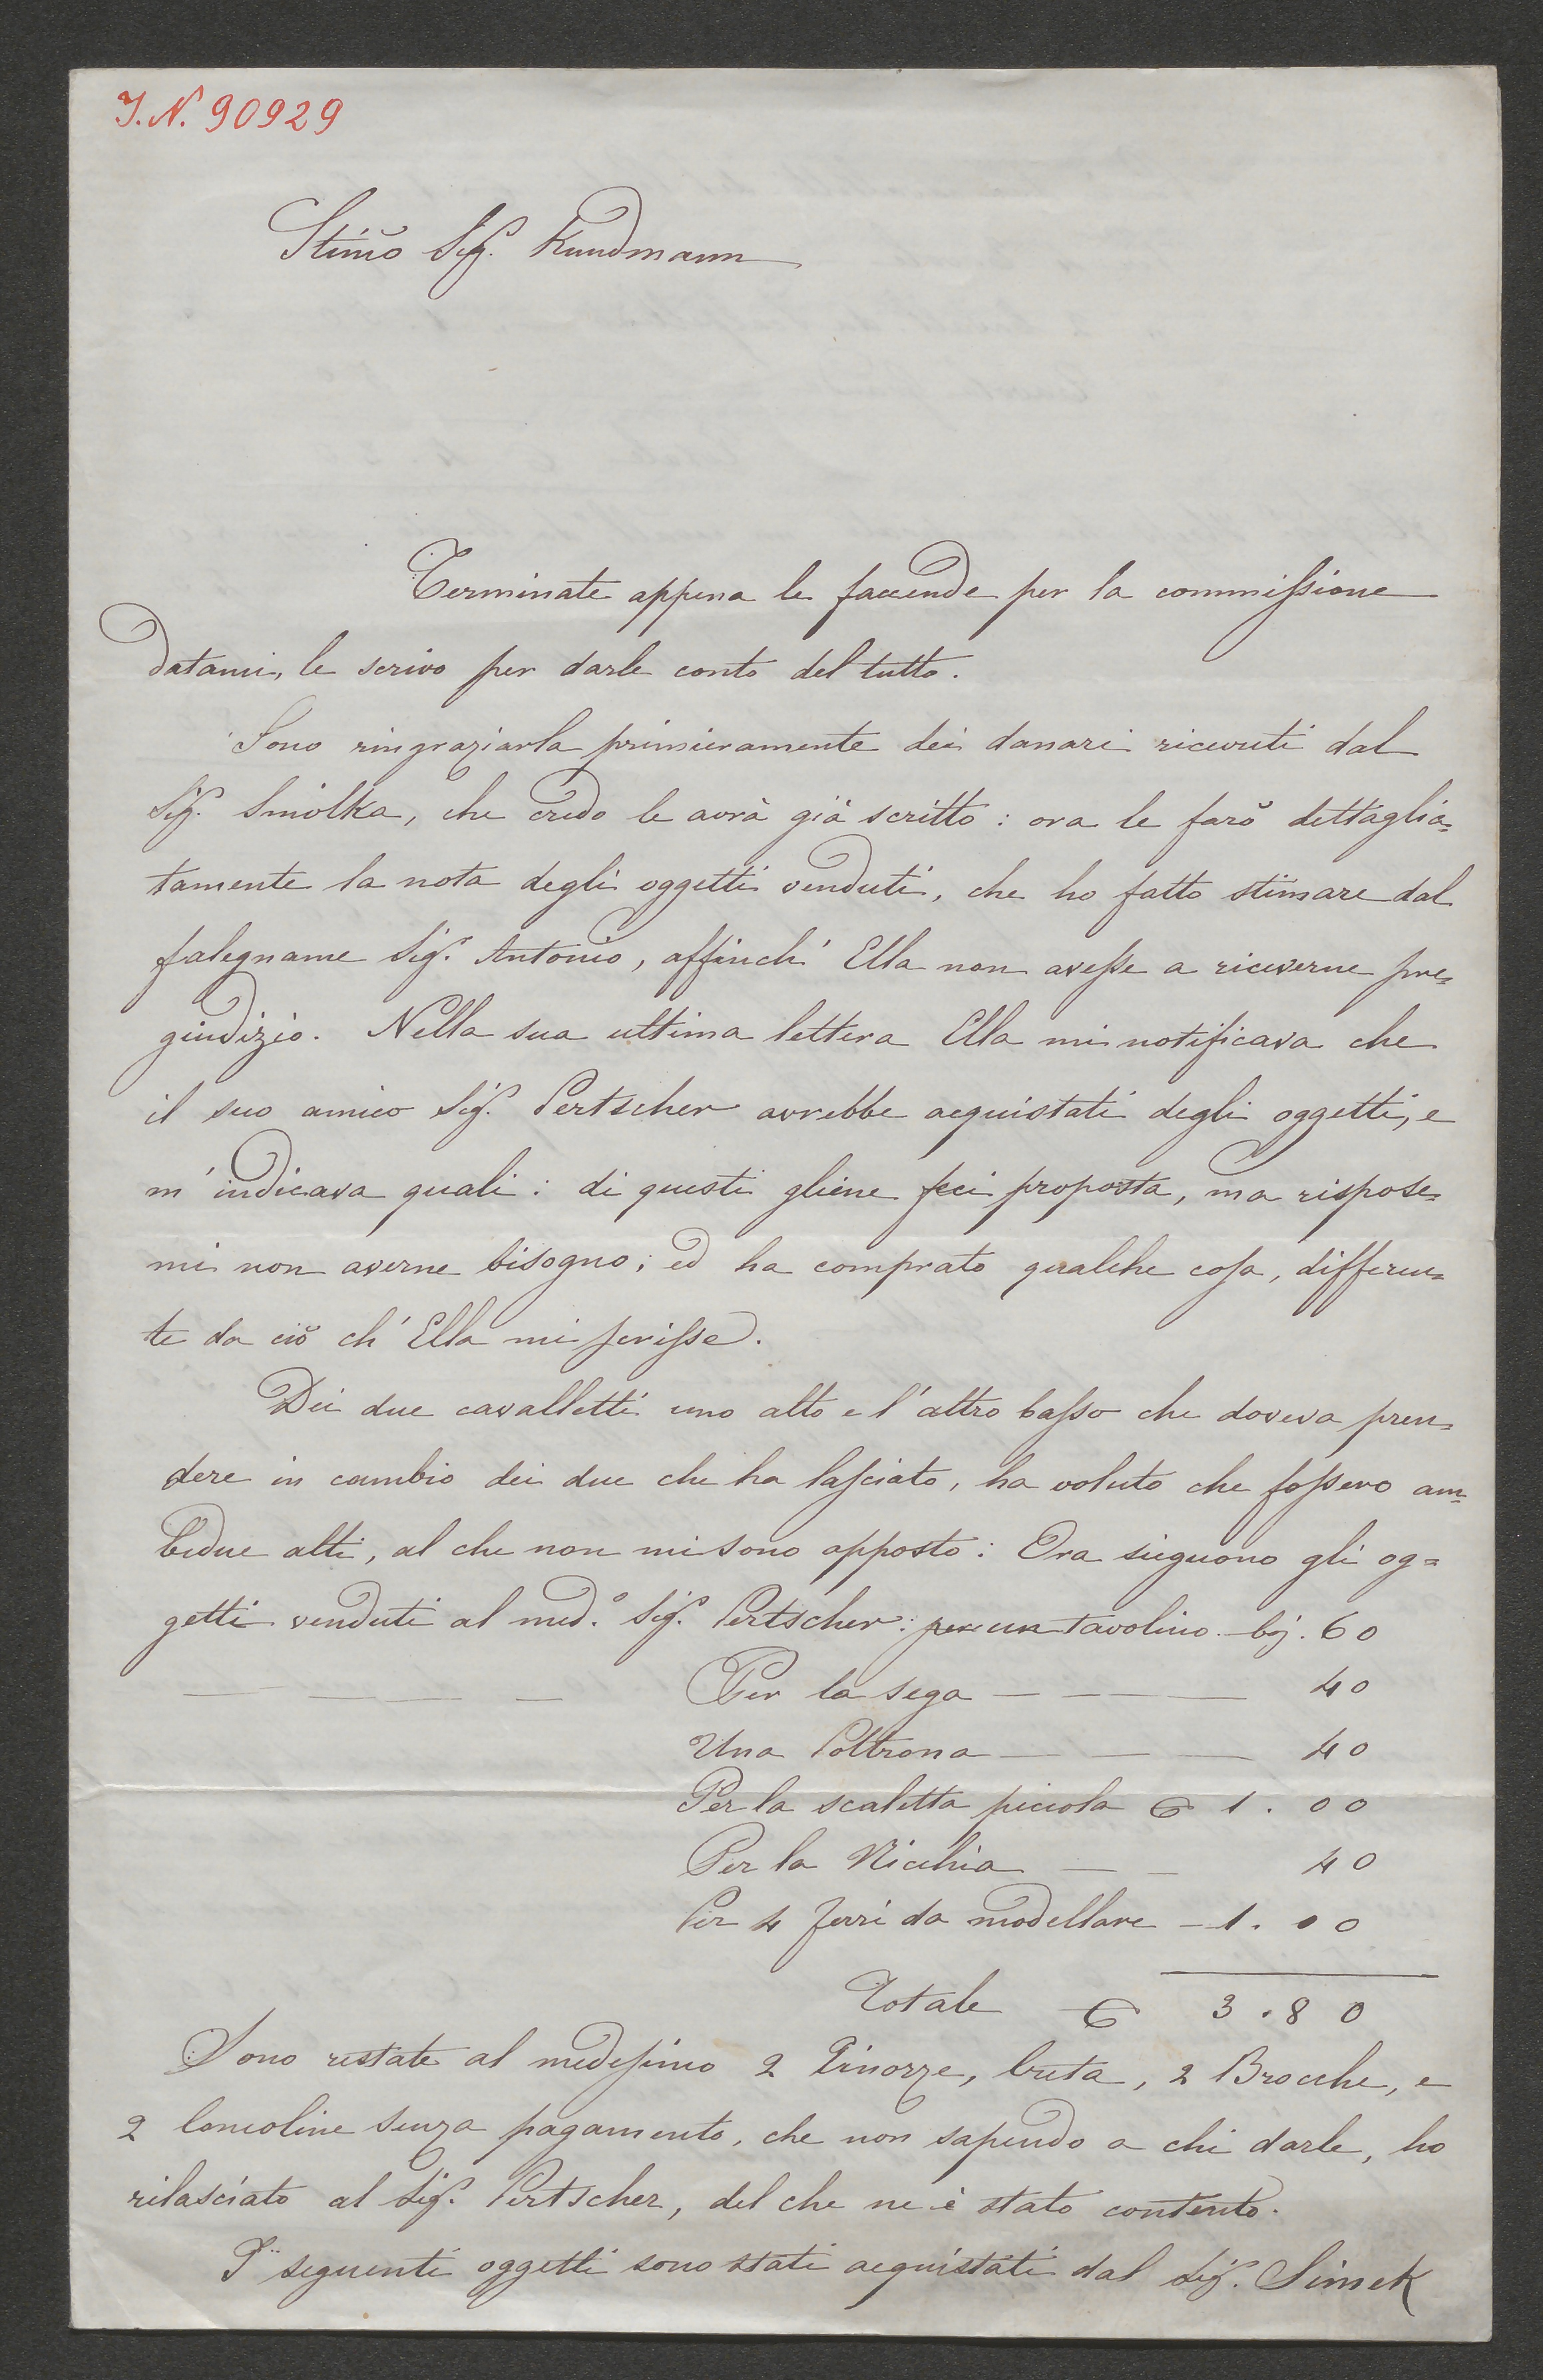 I.N. 90929
Stim̃o Sig.r Kundmann
Terminate appena le faccende per la commissione
datami, le scrivo per darle conto del tutto.
Sono ringraziarla primieramente dei danari ricevuti dal
Sig.r Smolka, che credo le avrà già scritto: ora le farò dettaglia=
tamente la nota degli oggetti venduti, che ho fatto stimare dal
falegname Sig.r Antonio, affinché Ella non avesse a riceverne pre=
giudizio. Nella sua ultima lettera Ella mi notificava che
il suo amico Sig.r Pertscher avrebbe acquistati degli oggetti, e
m'indicava quali: di questi gliene feci proposta, ma rispose=
mi non averne bisogno; ed ha comprato qualche cosa, differen=
te da ciò ch'Ella mi scrisse.
Dei due cavalletti uno alto e l'altro basso che doveva pren=
dere in cambio dei due che ha lasciato, ha voluto che fossero am=
bedue alti, al che non mi sono opposto: Ora sieguono gli og=
getti venduti al med.o Sig.r Pertscher: per un tavolino bj. 60
Per la sega — — — 40
Una Poltrona — — — 40
Per la scaletta piccola 1.00
Per la Nicchia — — 40
Per 4 ferri da modellare — 1.00
Totale 3.80
Sono restate al medesimo 2 Tinozze, creta, 2 Brocche, e
2 Concoline senza pagamento, che non sapendo a chi darle, ho
rilasciato al Sig.r Pertscher, del che ne è stato contento.
I seguenti oggetti sono stati acquistati dal Sig.r Simek